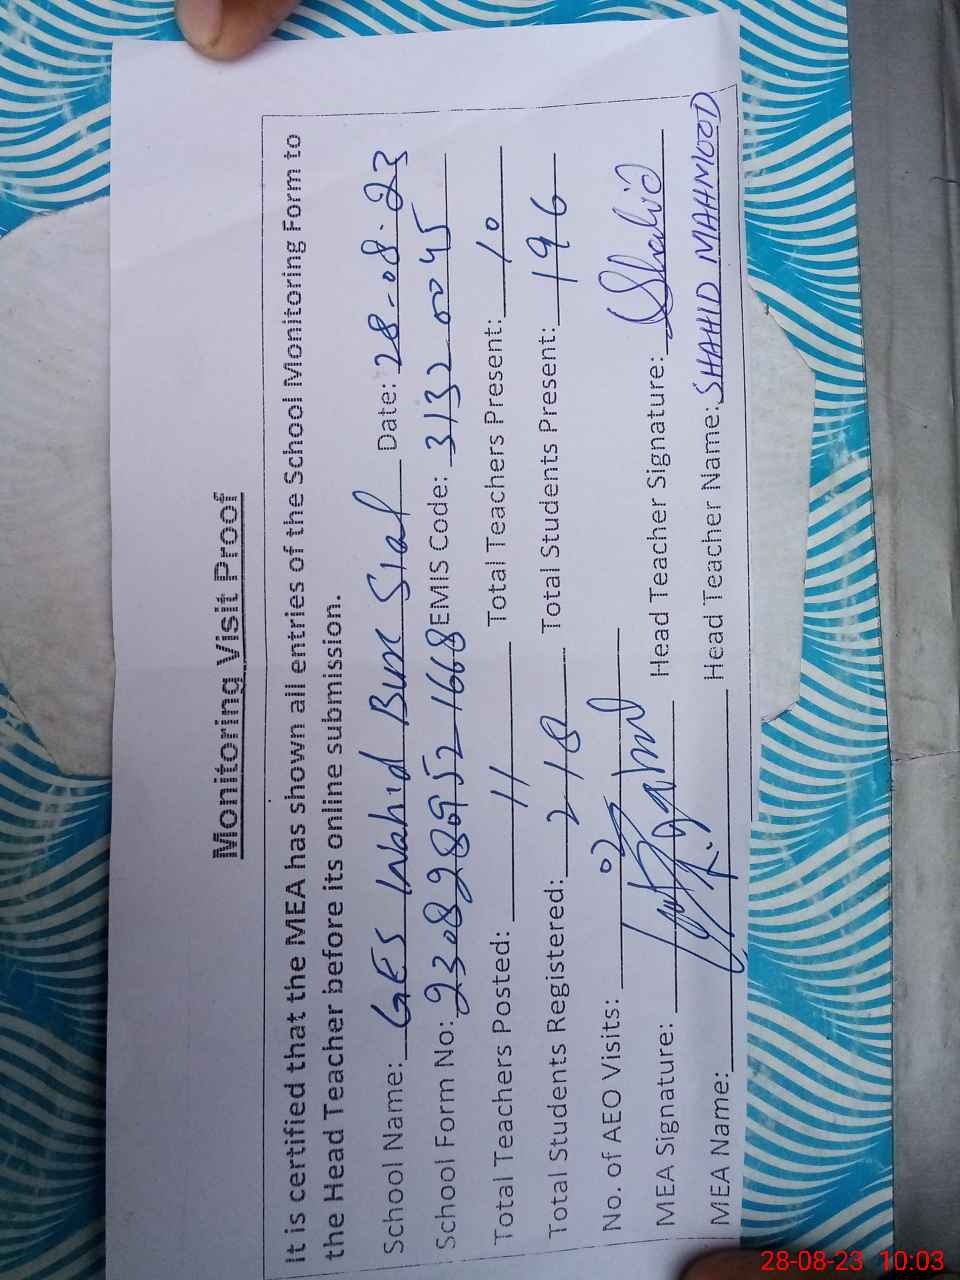 Monitoring Visit Proof
It is certified that the MEA has shown all entries of the School Monitoring Form to
the Head Teacher before its online submission.
School Name: GES Wahid Bux Sial Date: 28-08-23
School Form No: EMIS Code: 31320045
Total Teachers Posted: 11 Total Teachers Present: 10
Total Students Registered: 218 Total Students Present: 196
No. of AEO Visits: 02
MEA Signature: Head Teacher Signature: Shahid
MEA Name: Head Teacher Name: SHAHID MAHMOOD
28-08-23 10:03